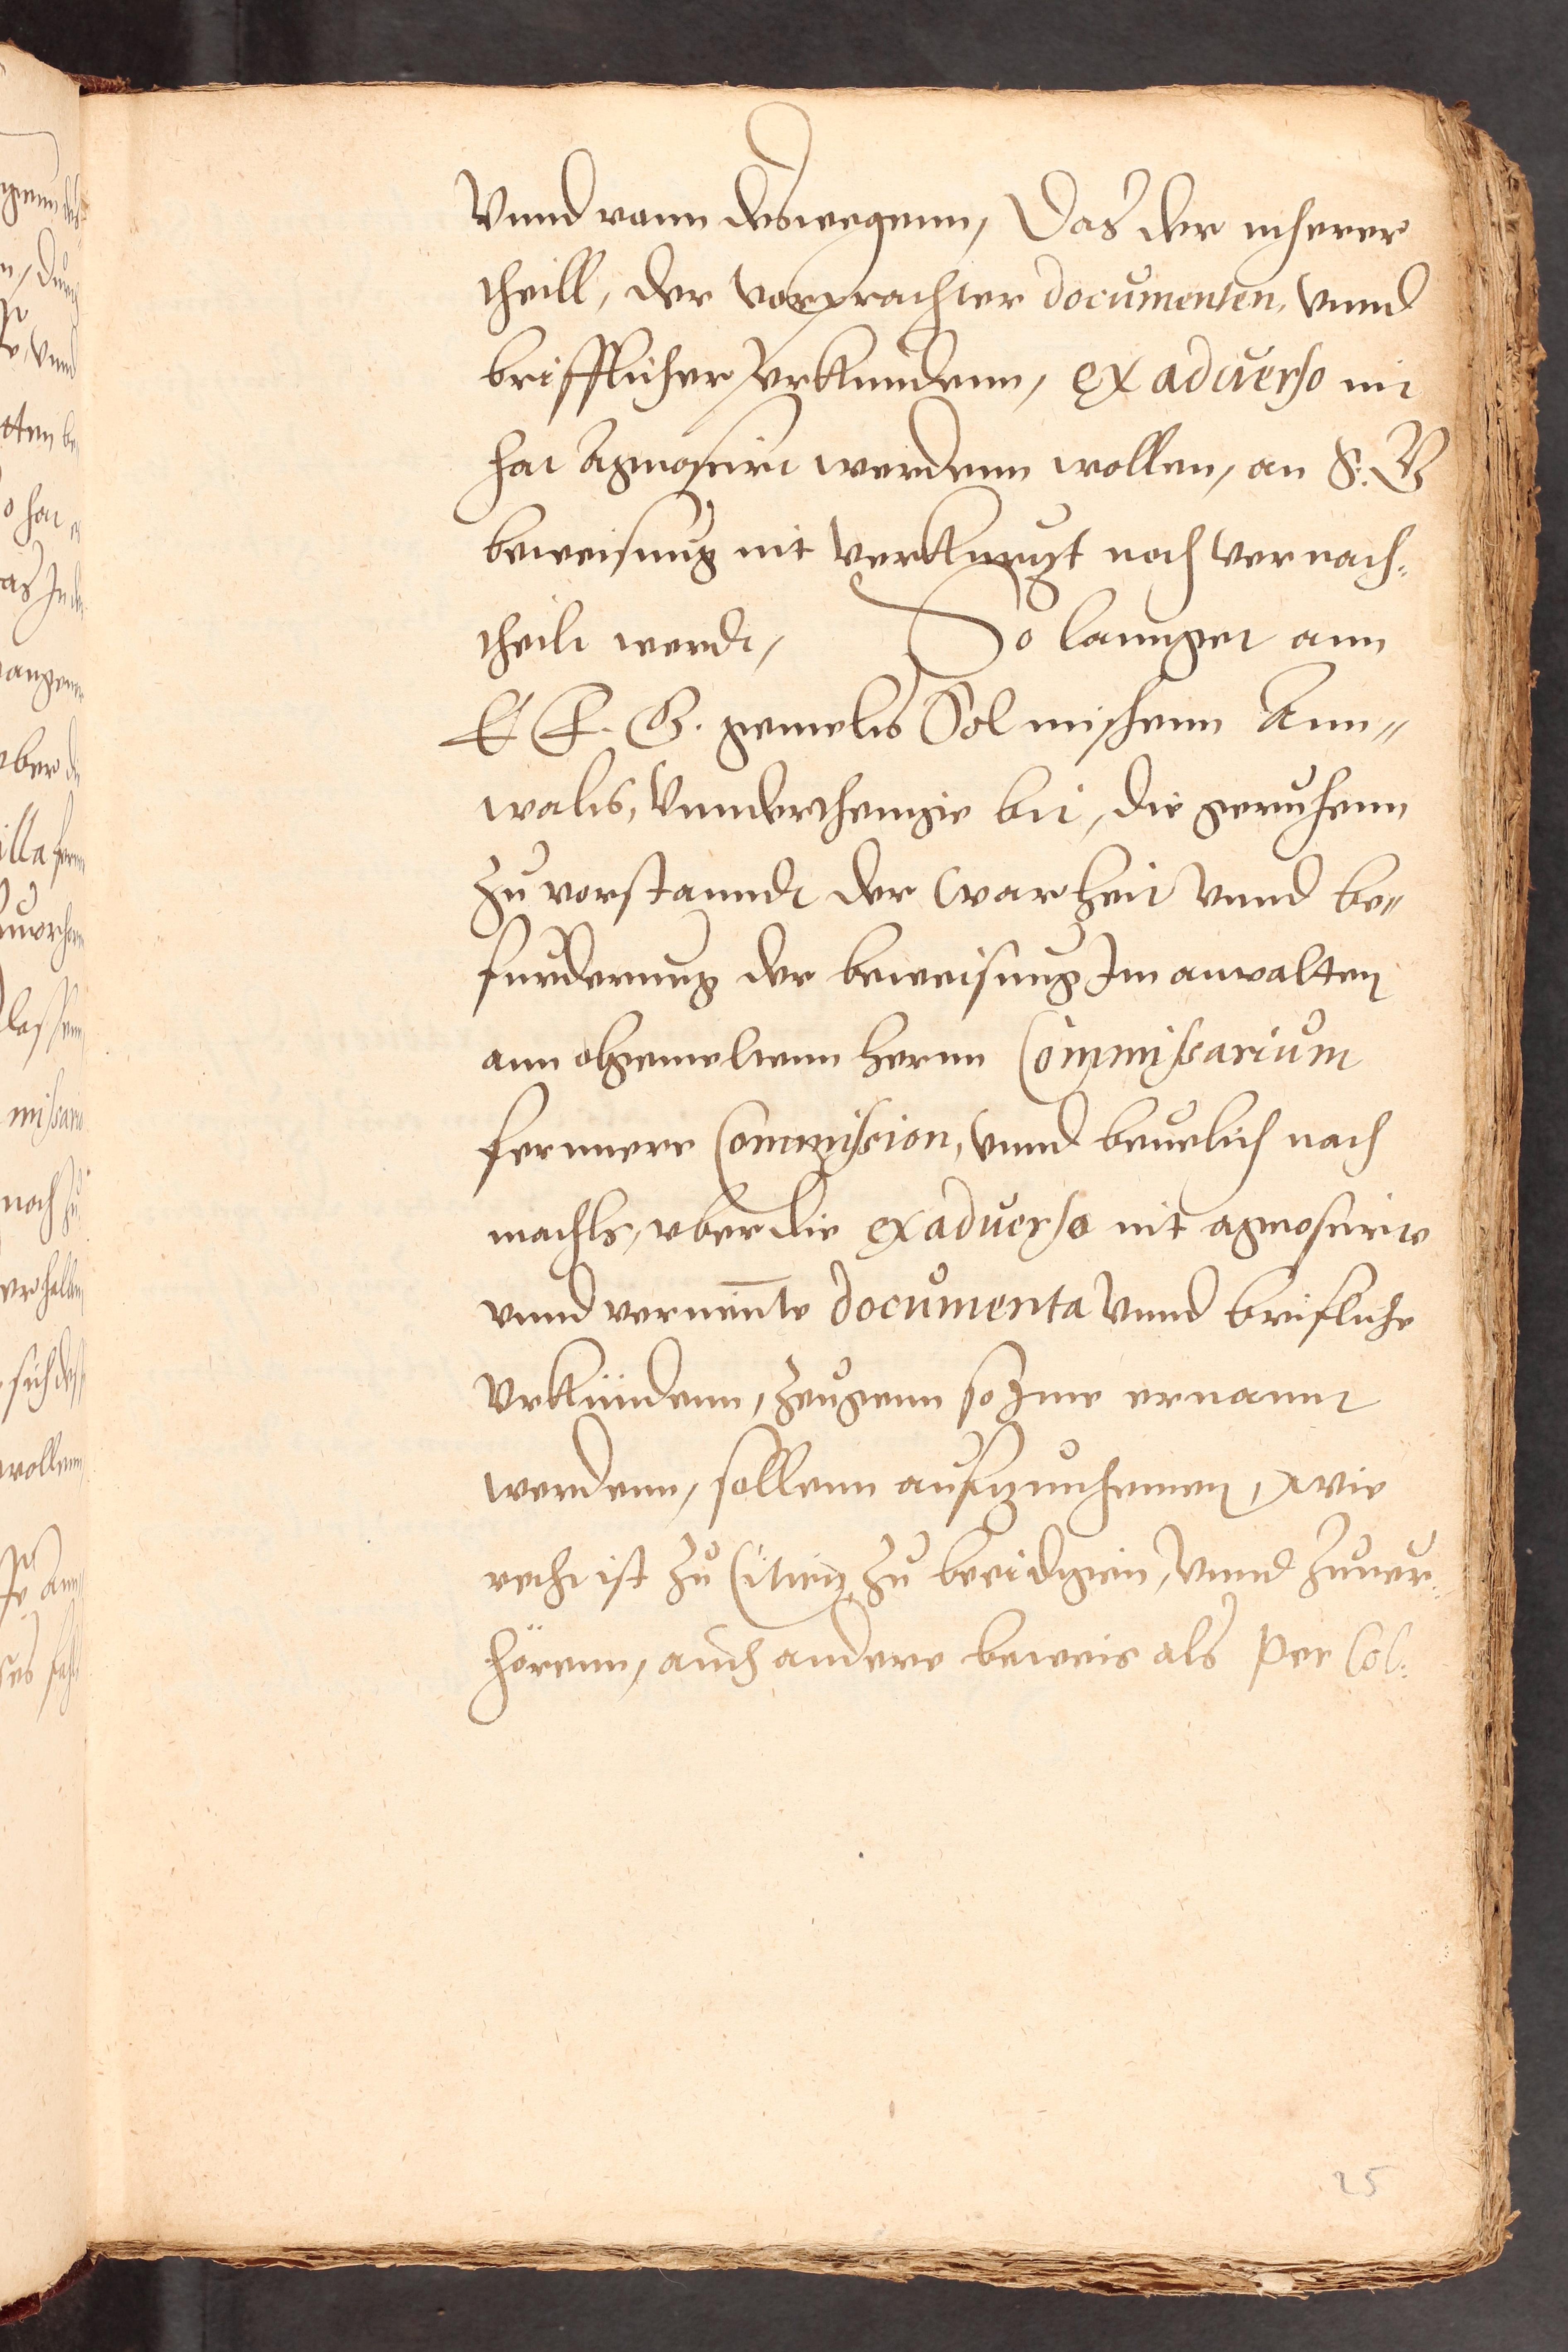 Vnnd wann deswegenn, Das der meherer
theill, der vorprachter documenten, vnnd
briefflicher Vrkundenn, ex aduerso nit
hat agnoscirt werdenn wollen, an S: G
beweisung nit verkurtzt noch vernach-
theilt werdt, So lannget ann
E F. G. gemelts Solmischenn Ann-
walts, Vnnderthenige bit, die geruhenn
zu vorstanndt der Warheit vnnd be-
furderung der beweisung Im anwalten
ann obgemeltenn herrn Commissarium
fernnere Commission, vnnd beuelich nach
machls, vber die ex aduerso nit agnoscirte
vnnd verneinte documenta vnnd briefliche
Vrkundenn, Zeugenn so Ime ernannt
werdenn, sollenn aufzunhemen, wie
recht ist zu Citirn zu beeidigen, vnnd zuuer-
hörenn, auch andere beweis als per Col-
25